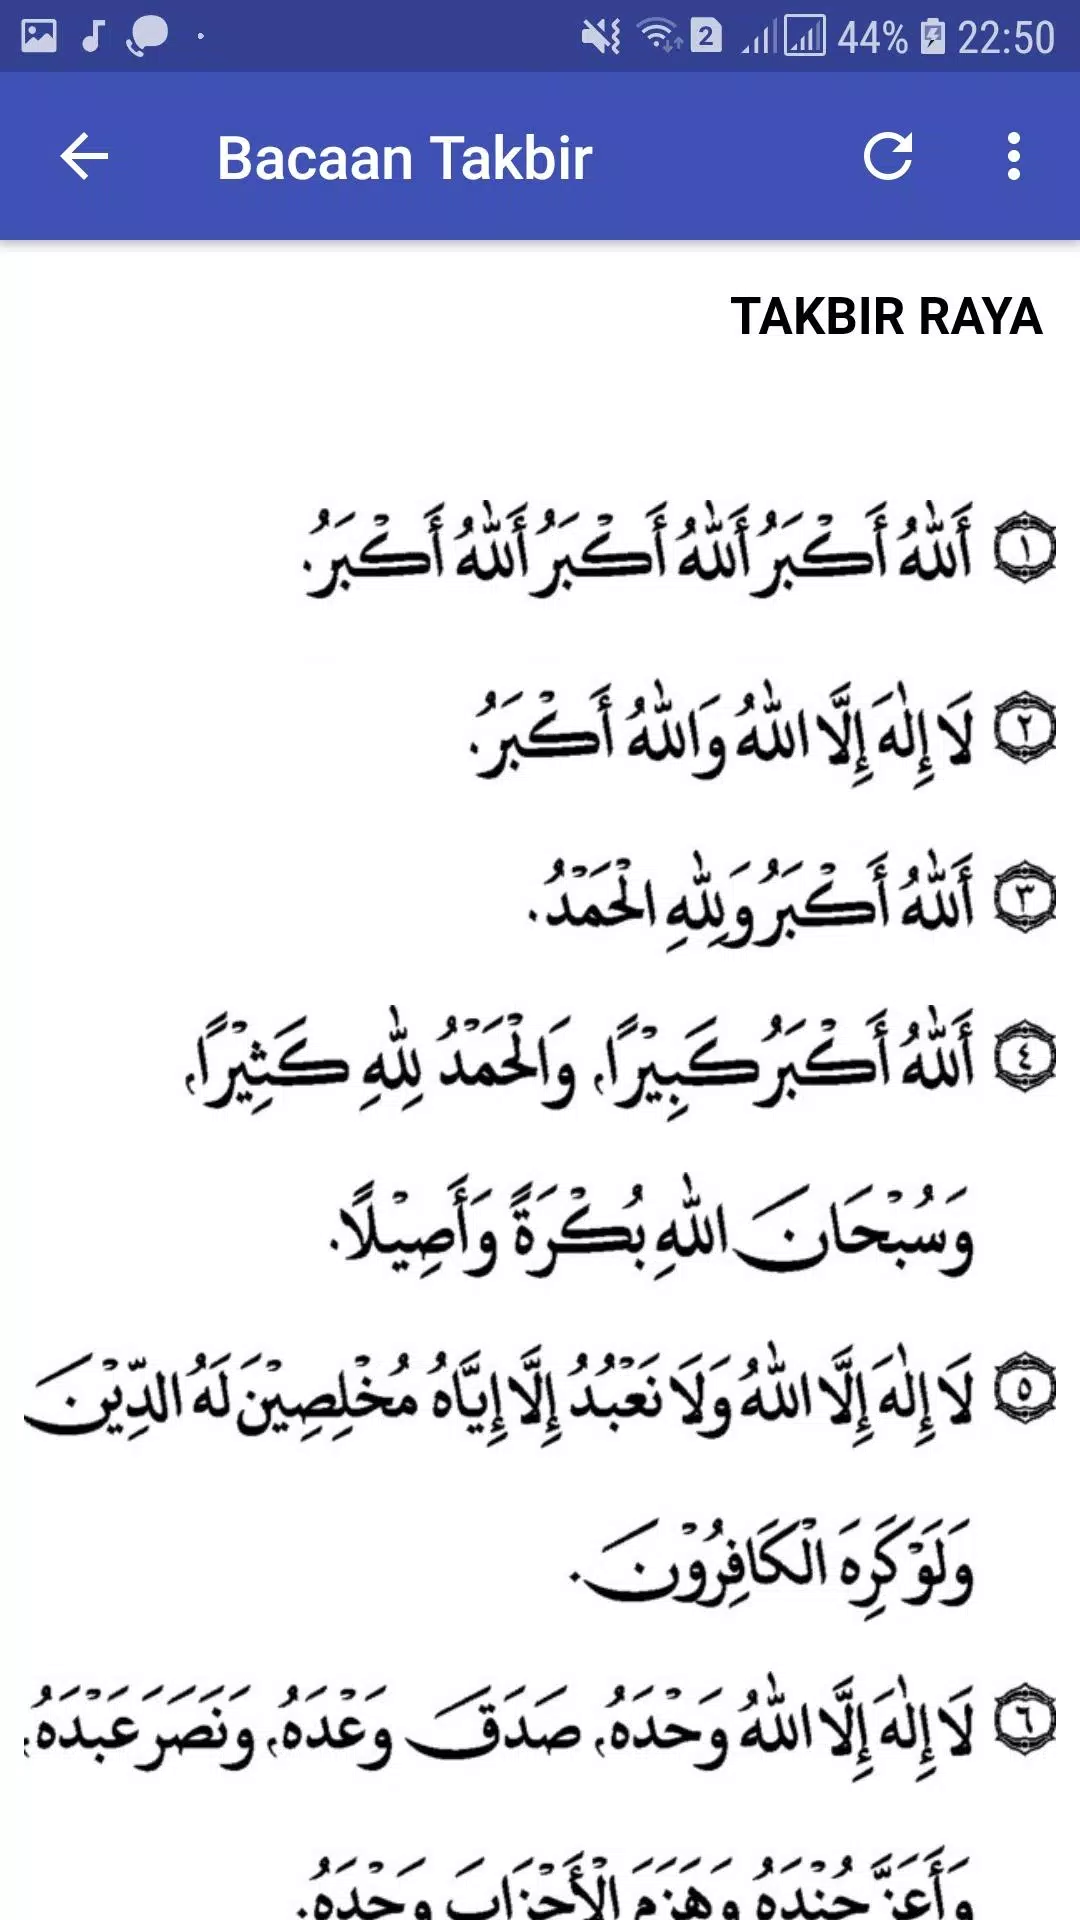 2 44% 22:50
Bacaan Takbir
TAKBIR RAYA
١ أَللهُ أَكْبَرُ أَللهُ أَكْبَرُ أَللهُ أَكْبَرُ.
٢ لَا إِلٰهَ إِلَّا اللهُ وَاللهُ أَكْبَرُ.
٣ أَللهُ أَكْبَرُ وَلِلّٰهِ الْحَمْدُ.
٤ أَللهُ أَكْبَرُ كَبِيْرًا، وَالْحَمْدُ لِلّٰهِ كَثِيْرًا،
وَسُبْحَانَ اللهِ بُكْرَةً وَأَصِيْلًا.
٥ لَا إِلٰهَ إِلَّا اللهُ وَلَا نَعْبُدُ إِلَّا إِيَّاهُ مُخْلِصِيْنَ لَهُ الدِّيْنَ
وَلَوْ كَرِهَ الْكَافِرُوْنَ.
٦ لَا إِلٰهَ إِلَّا اللهُ وَحْدَهُ، صَدَقَ وَعْدَهُ، وَنَصَرَ عَبْدَهُ،
وَأَعَزَّ جُنْدَهُ وَهَزَمَ الْأَحْزَابَ وَحْدَهُ.